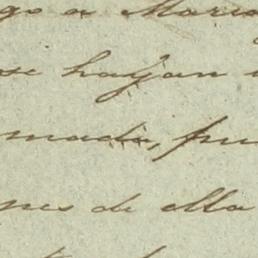 go a Maria
se hayan
mada, pue
nes de ella